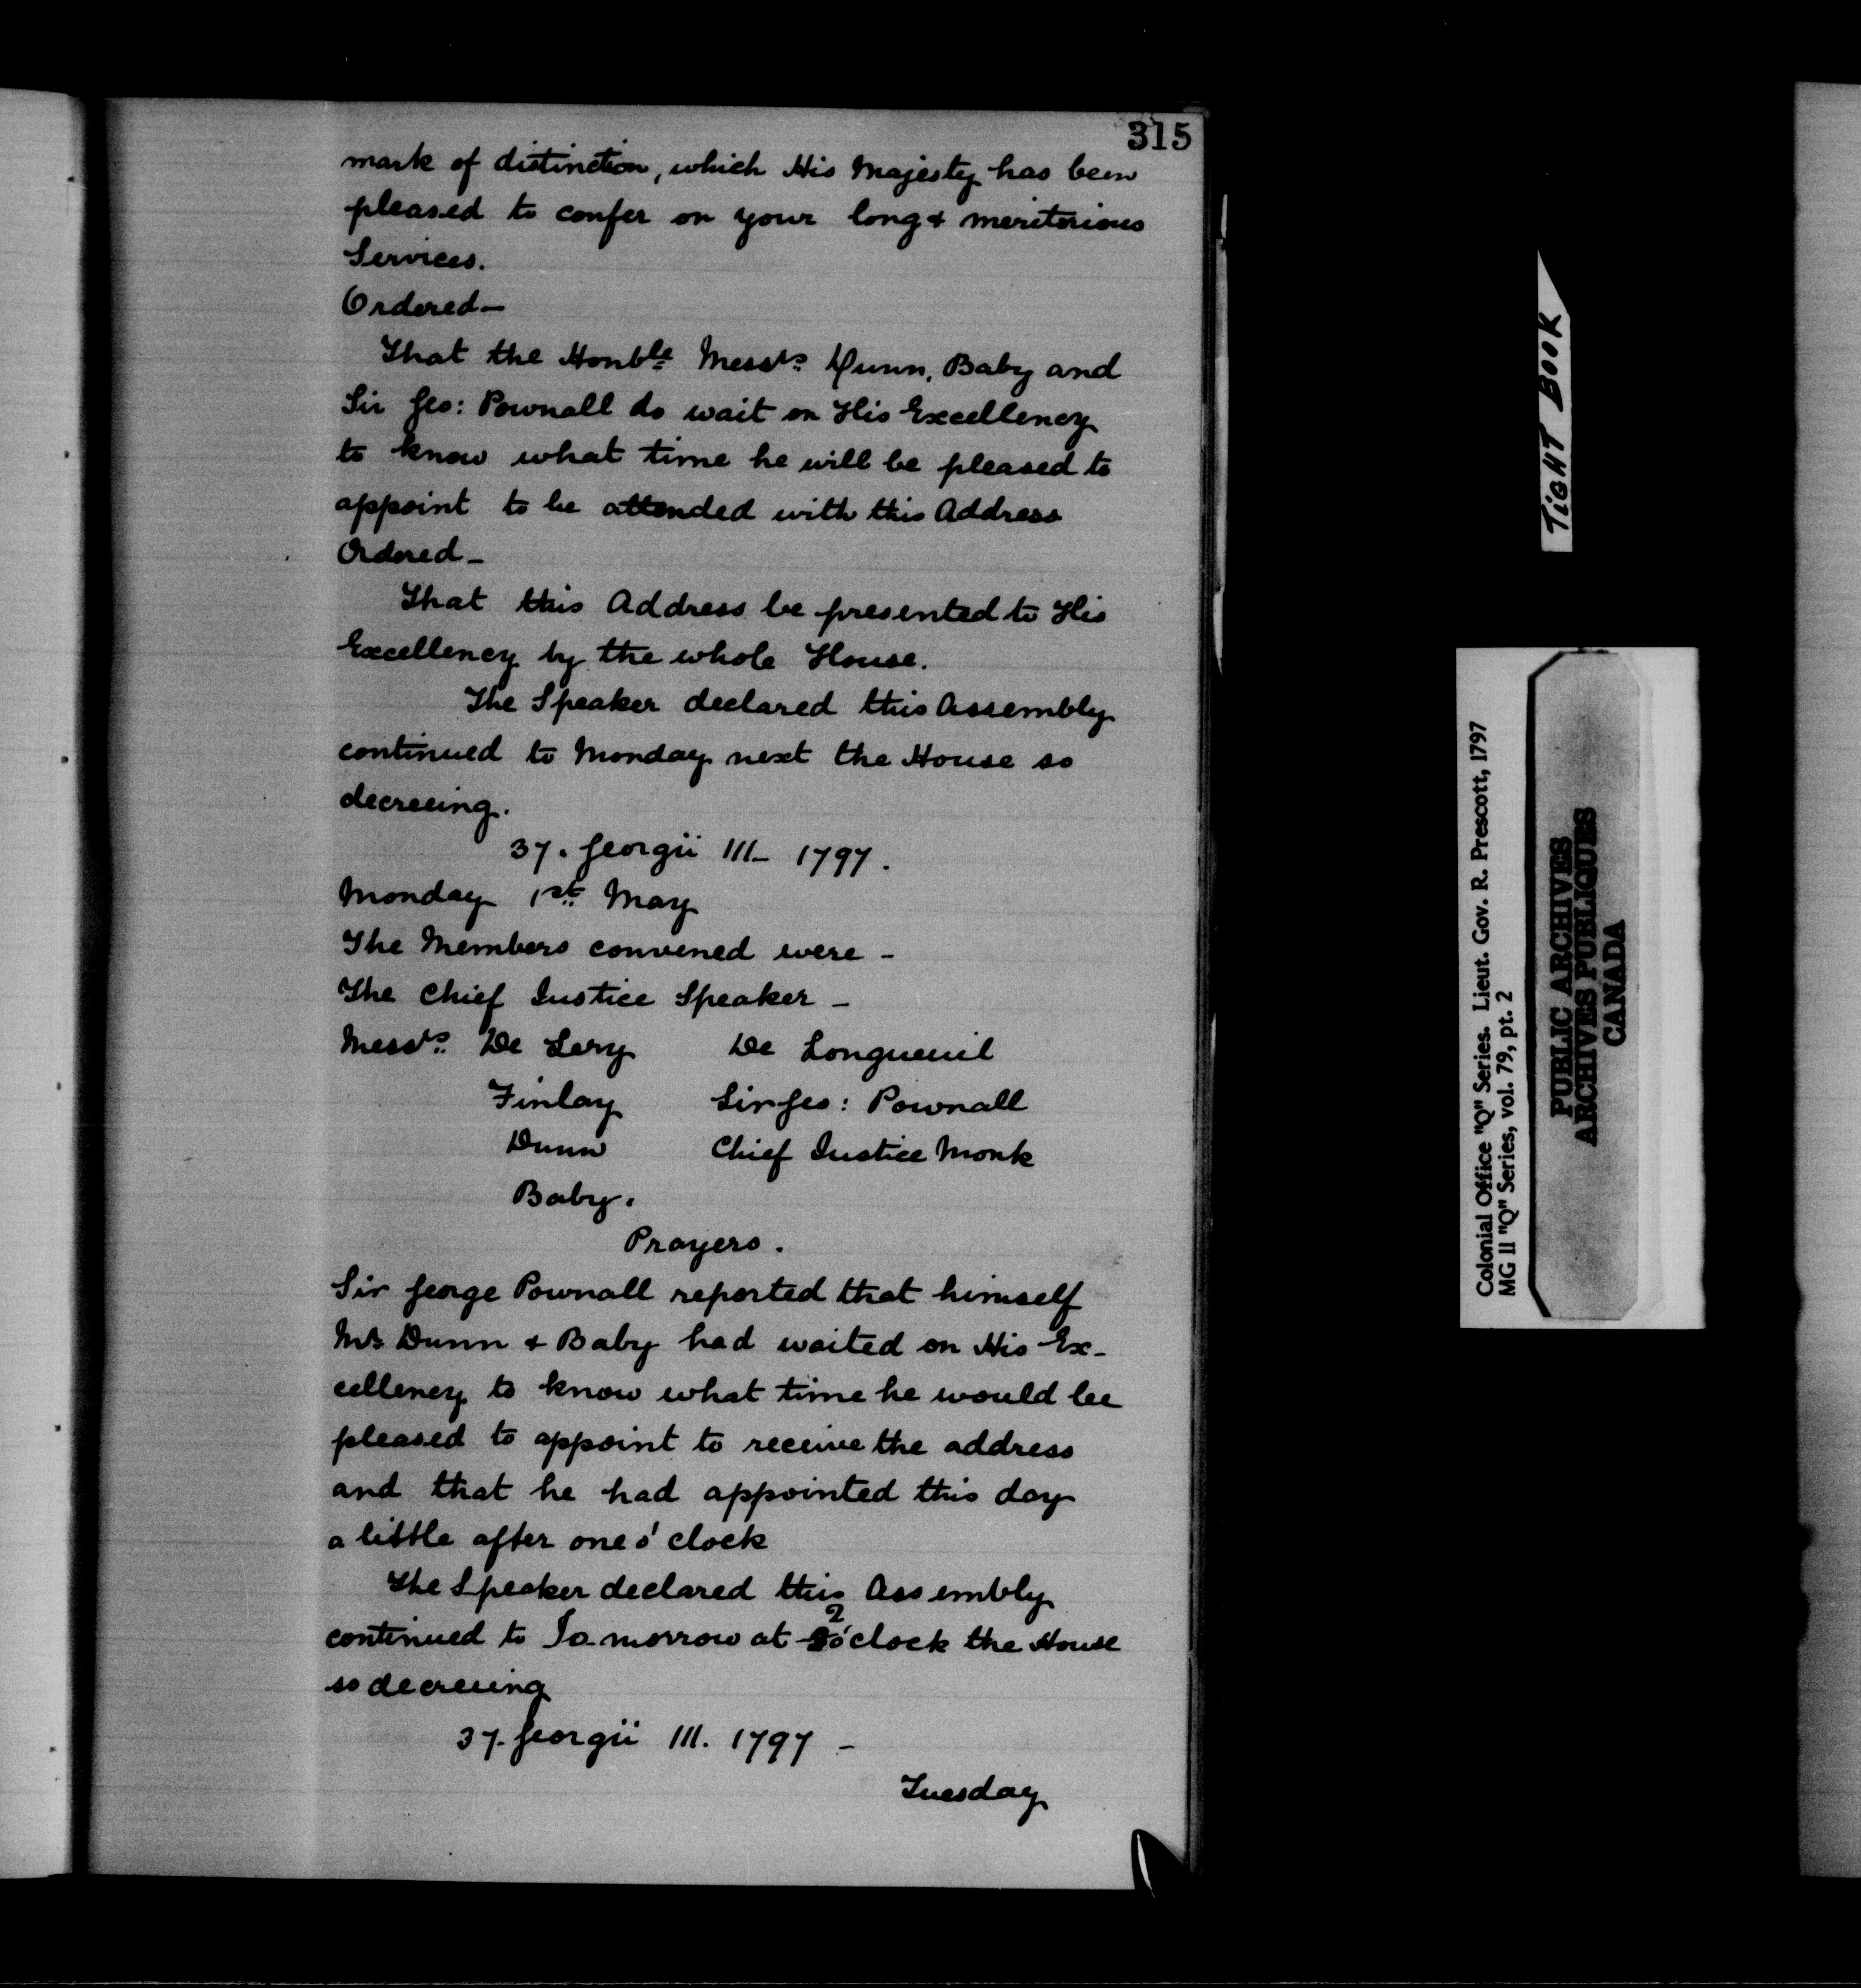 315
mark of distinction, which His Majesty has been
pleased to confer on your long & meritorious
Services.
Ordered—
That the Honble Messrs Dunn, Baby and
Sir Geo: Pownall do wait on His Excellency
to know what time he will be pleased to
appoint to be attended with this Address
Ordered—
That this Address be presented to His
Excellency by the whole House.
The Speaker declared this Assembly
continued to Monday next the House so
decreeing.
37. Georgii III— 1797.
Monday 1st May
The Members convened were -
The Chief Justice Speaker —
Messrs De Lery De Longueuil
Finlay Sir Geo: Pownall
Dunn Chief Justice Monk
Baby.
Prayers.
Sir George Pownall reported that himself
Mrs Dunn & Baby had waited on His Ex-
cellency to know what time he would be
pleased to appoint to receive the address
and that he had appointed this day
a little after one o'clock
The Speaker declared this Assembly
continued to To-morrow at 2 o'clock the House
so decreeing
37. Georgii III. 1797 -
Tuesday
TIGHT BOOK
Colonial Office "Q" Series. Lieut. Gov. R. Prescott, 1797
MG 11 "Q" Series, vol. 79, pt. 2
PUBLIC ARCHIVES
ARCHIVES PUBLIQUES
CANADA